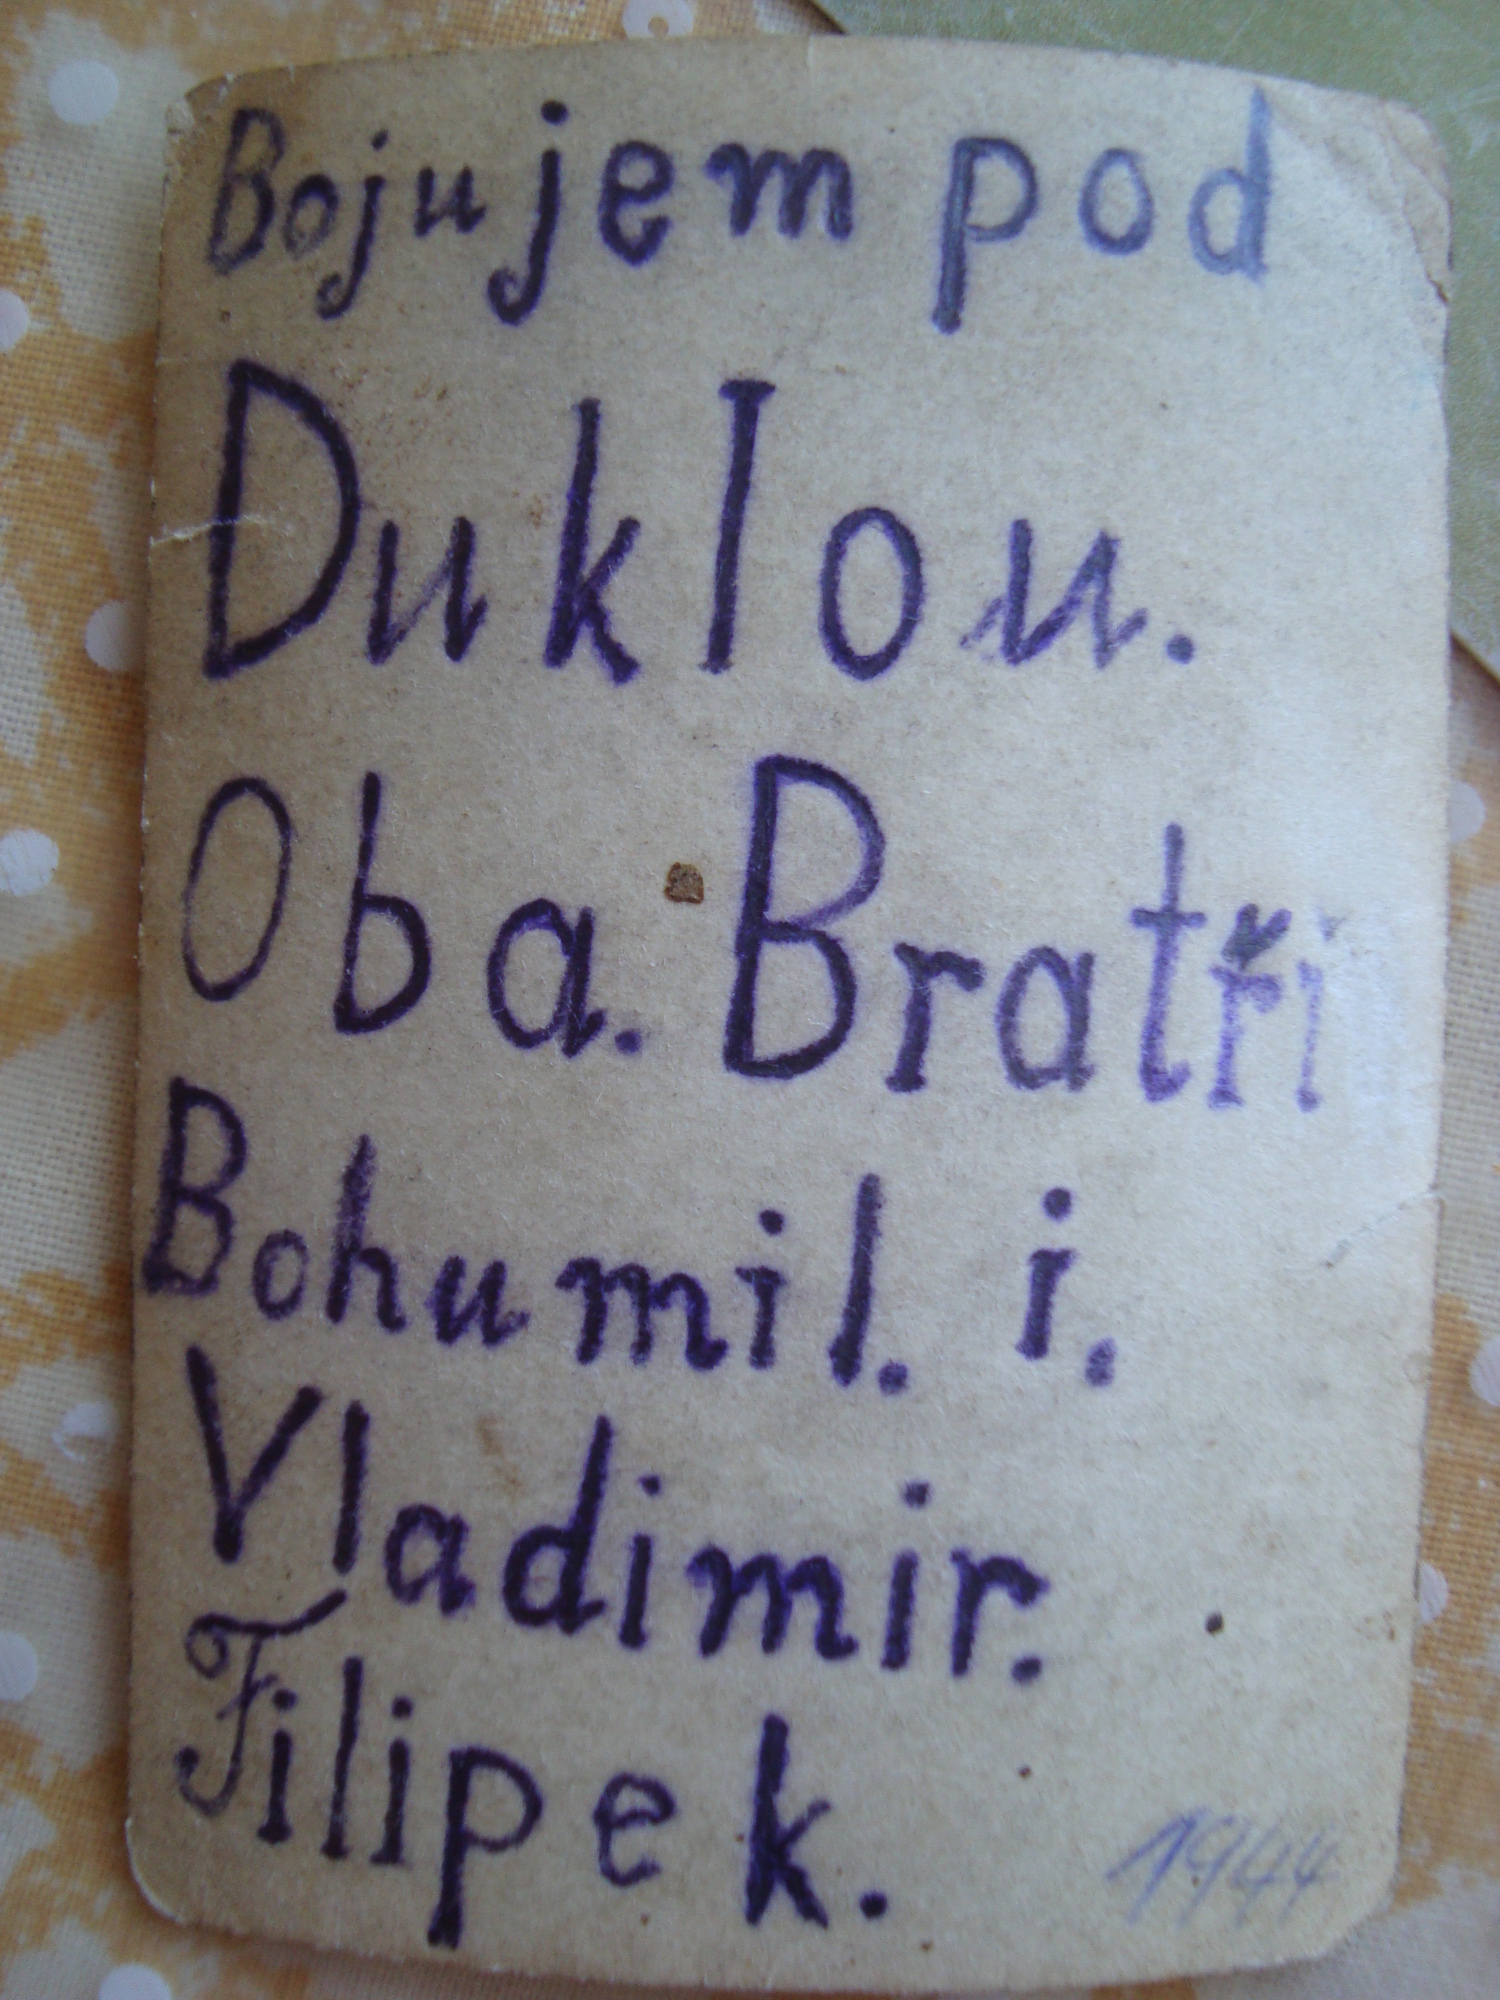 Bojujem pod
Duklou.
Oba. Bratři
Bohumil. i.
Vladimir.
Filipek.
1944